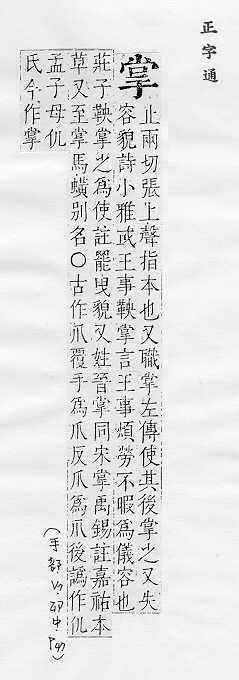 正字通
掌
止兩切張上聲指本也又職掌左傳使其後掌之又失
容貌詩小雅或王事鞅掌言王事煩勞不暇爲儀容也
莊子鞅掌之爲使註罷曳貌又姓晉掌同宋掌禹錫註嘉祐本
草又至掌馬蟥別名○古作爪覆手爲爪反爪爲爪後譌作仉
孟子母仉
氏今作掌
(手部